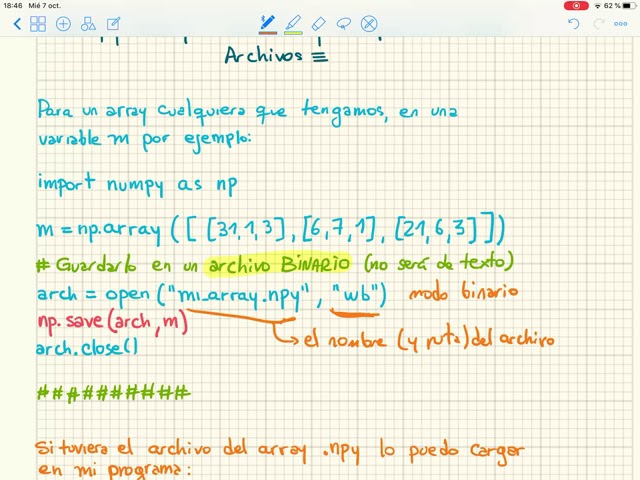 18:46 Mié 7 oct.
62 %
Archivos
Para un array cualquiera que tengamos, en una
variable m por ejemplo:
import numpy as np
m = np.array([[31,1,3],[6,7,1],[21,6,3]])
# Guardarlo en un archivo BINARIO (no será de texto)
arch = open("mi_array.npy", "wb") modo binario
np.save(arch,m)
el nombre (y ruta) del archivo
arch.close()
##########
Si tuviera el archivo del array .npy lo puedo cargar
en mi programa: